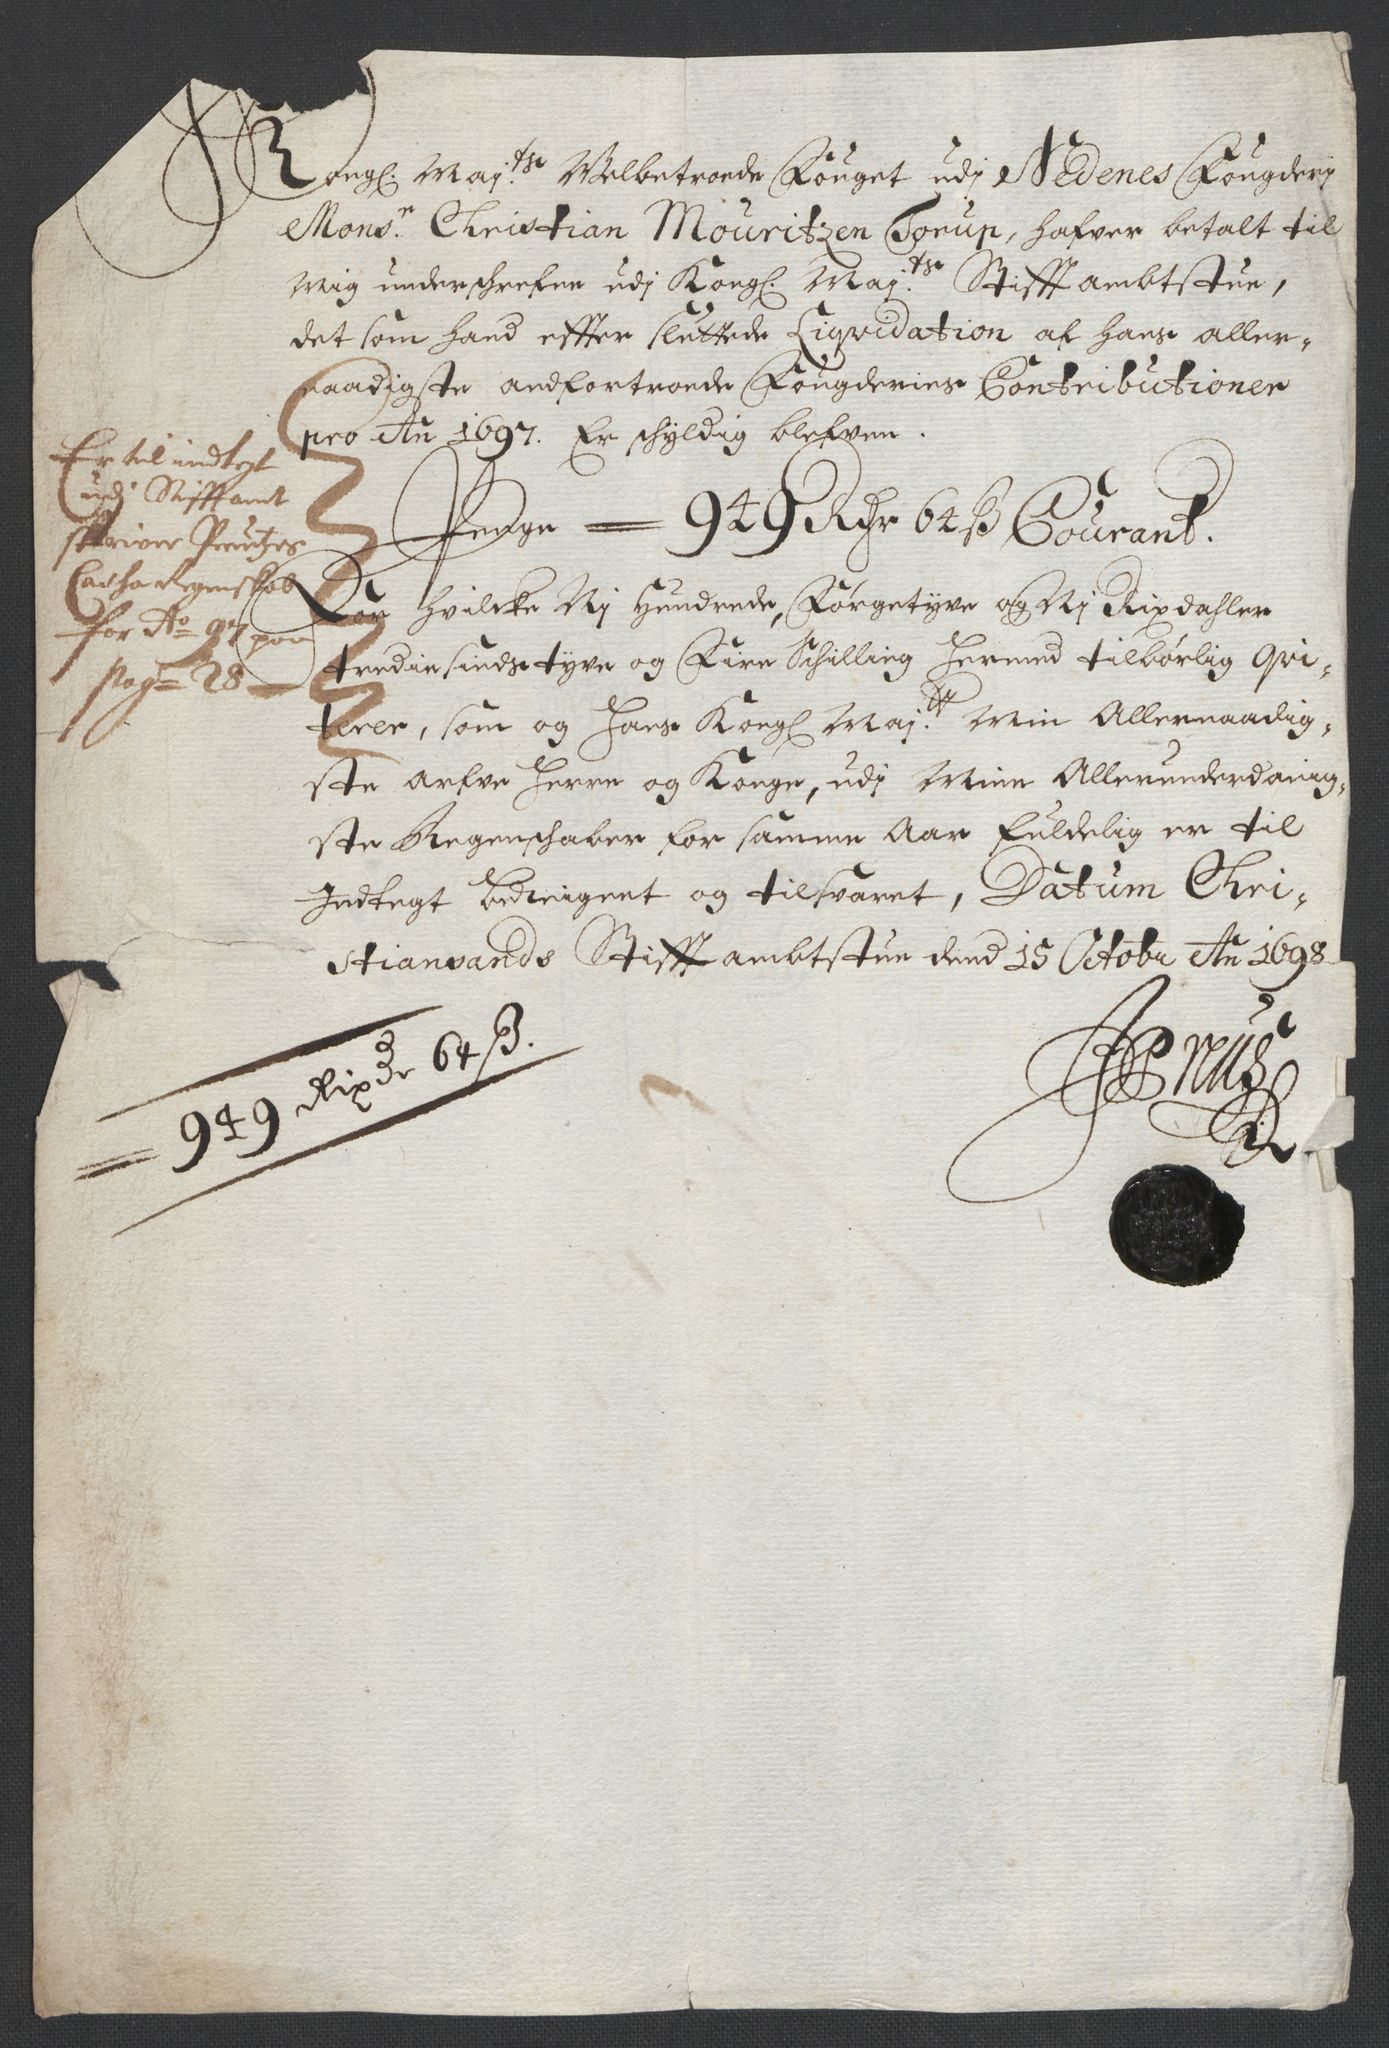 Kongl. Maj.ts Velbetroede Fouget udj Nedenes Fougderj
Mons.r Christian Mouritzen Torup, hafver betalt til
mig underschrefne udj Kongl. Maj.ts Stifft ambtstue,
det som hand effter sluttede Liqvidation af hans aller-
naadigste andfortroede Fougderies Contributioner
pro An 1697. Er schyldig blefven.
Penge = 949 Rdr 64 ß Courant.
For hvilcke Nj Hundrede, Førgetyve og Nj Rixdahler
trediesindstyve og Fire Schilling hermed tilbørlig qvi-
terer, som og hans Kongl Maj.ts Min Allernaadig-
ste arfve Herre og Konge, udj Mine Allerunderdanig-
ste Regenschaber for samme Aar fuldelig er til
Indtegt beregnet og tilsvaret, Datum Chri-
stiansands Stifft ambtstue dend 15 Octobr An 1698
Er til indtegt
udj Stifftamt
skriver Preutzes
Cassa Regenskab
for Ao 97 paa
pag= 28
= 949 Rixdr 64 ß.